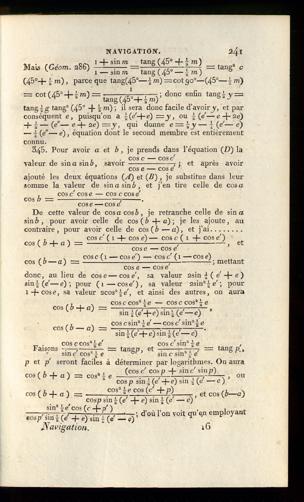 NAVIGATION. 241
Mais (Géom. 286) (1 + sin m)/(1 — sin m) = tang (45° + ½ m)/tang (45° — ½ m) = tang²
(45° + ½ m), parce que tang(45° — ½ m) = cot 90° — (45° — ½ m)
= cot (45° + ½ m) = 1/tang (45° + ½ m); donc enfin tang ½ y =
tang ½ g tang² (45° + ½ m); il sera donc facile d'avoir y, et par
conséquent e, puisqu'on a ½ (e' + e) = y, ou ½ (e' — e + 2e)
+ ½ — (e' — e + 2e) = y, qui donne e = ½ y — ½ (e' — e)
— ½ (e' — e), équation dont le second membre est entièrement
connu.
345. Pour avoir a et b, je prends dans l'équation (D) la
valeur de sin a sin b, savoir (cos c — cos c')/(cos e — cos e'); et après avoir
ajouté les deux équations (A) et (B), je substitue dans leur
somme la valeur de sin a sin b, et j'en tire celle de cos a
cos b = (cos c' cos e — cos c cos e')/(cos e — cos e')
De cette valeur de cos a cos b, je retranche celle de sin a
sin b, pour avoir celle de cos (b + a); je les ajoute, au
contraire, pour avoir celle de cos (b — a), et j'ai........
cos (b + a) = (cos c' (1 + cos e) — cos c (1 + cos e'))/(cos e — cos e'), et
cos (b — a) = (cos c (1 — cos e') — cos c' (1 — cos e))/(cos e — cos e'); mettant
donc, au lieu de cos e — cos e', sa valeur 2 sin ½ (e' + e)
sin ½ (e' — e); pour (1 — cos e'), sa valeur 2 sin² ½ e'; pour
1 + cos e, sa valeur 2 cos² ½ e, et ainsi des autres, on aura
cos (b + a) = (cos c' cos² ½ e — cos c cos² ½ e')/(sin ½ (e' + e) sin ½ (e' — e)),
cos (b — a) = (cos c sin² ½ e' — cos c' sin² ½ e)/(sin ½ (e' + e) sin ½ (e' — e))
Faisons (cos c cos² ½ e')/(sin c' cos² ½ e) = tang p, et (cos c' sin² ½ e)/(sin c sin² ½ e') = tang p',
p et p' seront faciles à déterminer par logarithmes. On aura
cos (b + a) = cos² ½ e (cos c' cos p + sin c' sin p)/(cos p sin ½ (e' + e) sin ½ (e' — e)), ou
cos (b + a) = (cos² ½ e cos (c' + p))/(cos p sin ½ (e' + e) sin ½ (e' — e)), et cos (b — a)
(sin² ½ e' cos (c + p'))/(cos p' sin ½ (e' + e) sin ½ (e' — e)); d'où l'on voit qu'en employant
Navigation. 16